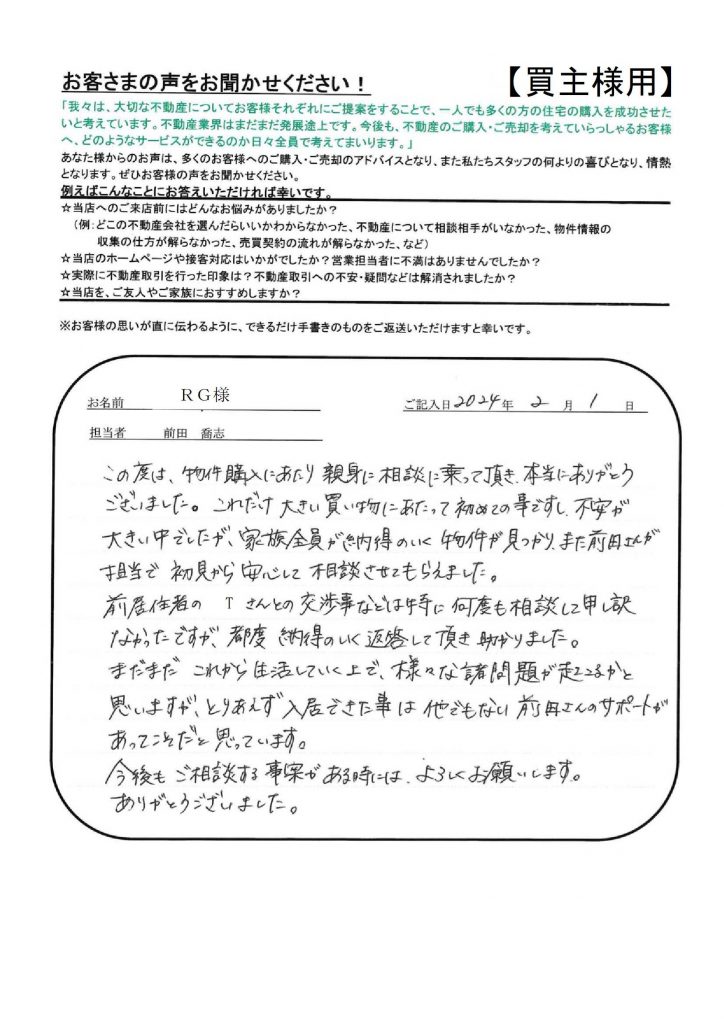 お客さまの声をお聞かせください！
【買主様用】
「我々は、大切な不動産についてお客様それぞれにご提案をすることで、一人でも多くの方の住宅の購入を成功させた
いと考えています。不動産業界はまだまだ発展途上です。今後も、不動産のご購入・ご売却を考えていらっしゃるお客様
へ、どのようなサービスができるのか日々全員で考えてまいります。」
あなた様からのお声は、多くのお客様へのご購入・ご売却のアドバイスとなり、また私たちスタッフの何よりの喜びとなり、情熱
となります。ぜひお客様の声をお聞かせください。
例えばこんなことにお答えいただければ幸いです。
☆当店へのご来店前にはどんなお悩みがありましたか？
（例：どこの不動産会社を選んだらいいかわからなかった、不動産について相談相手がいなかった、物件情報の
収集の仕方が解らなかった、売買契約の流れが解らなかった、など）
☆当店のホームページや接客対応はいかがでしたか？営業担当者に不満はありませんでしたか？
☆実際に不動産取引を行った印象は？不動産取引への不安・疑問などは解消されましたか？
☆当店を、ご友人やご家族におすすめしますか？
※お客様の思いが直に伝わるように、できるだけ手書きのものをご返送いただけますと幸いです。
お名前 ＲＧ様
ご記入日 2024 年 2 月 1 日
担当者 前田 喬志
この度は、物件購入にあたり親身に相談に乗って頂き、本当にありがとう
ございました。これだけ大きい買い物にあたって初めての事ですし、不安が
大きい中でしたが、家族全員が納得のいく物件が見つかり、また前田さんが
担当で初見から安心して相談させてもらえました。
前居住者の Tさんとの交渉事などは特に何度も相談して申し訳
なかったですが、都度納得のいく返答して頂き助かりました。
まだまだこれから生活していく上で、様々な諸問題が起こるかと
思いますが、とりあえず入居できた事は他でもない前田さんのサポートが
あってことだと思っています。
今後もご相談する事案がある時には、よろしくお願いします。
ありがとうございました。